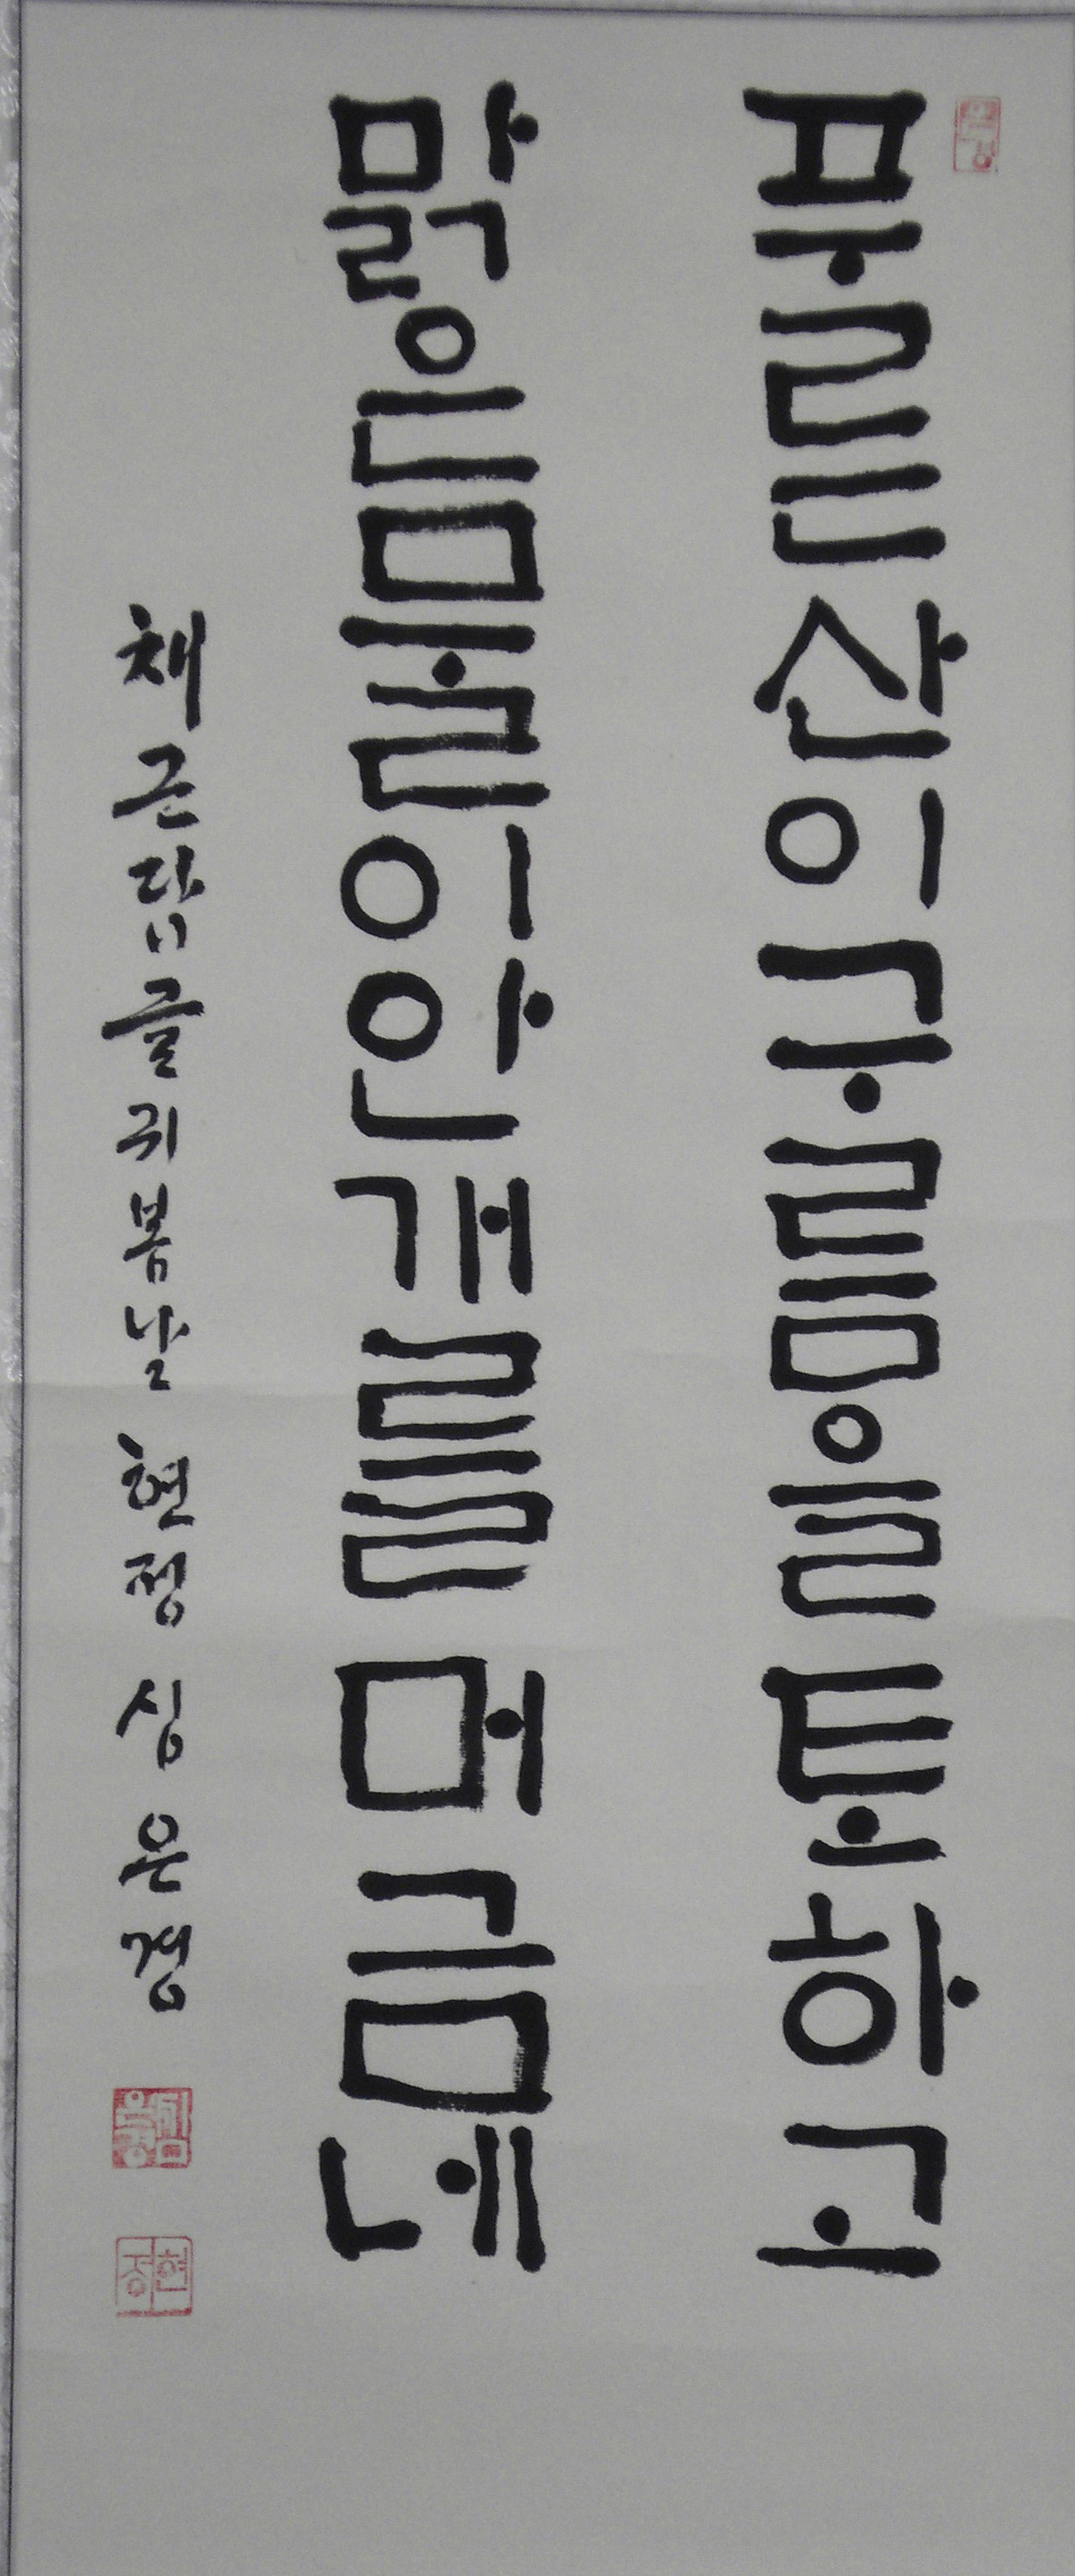 푸른산이구름을토하고
맑은물이안개를 머금네
채근담글귀봄날 현정 심은경
심은경
현정